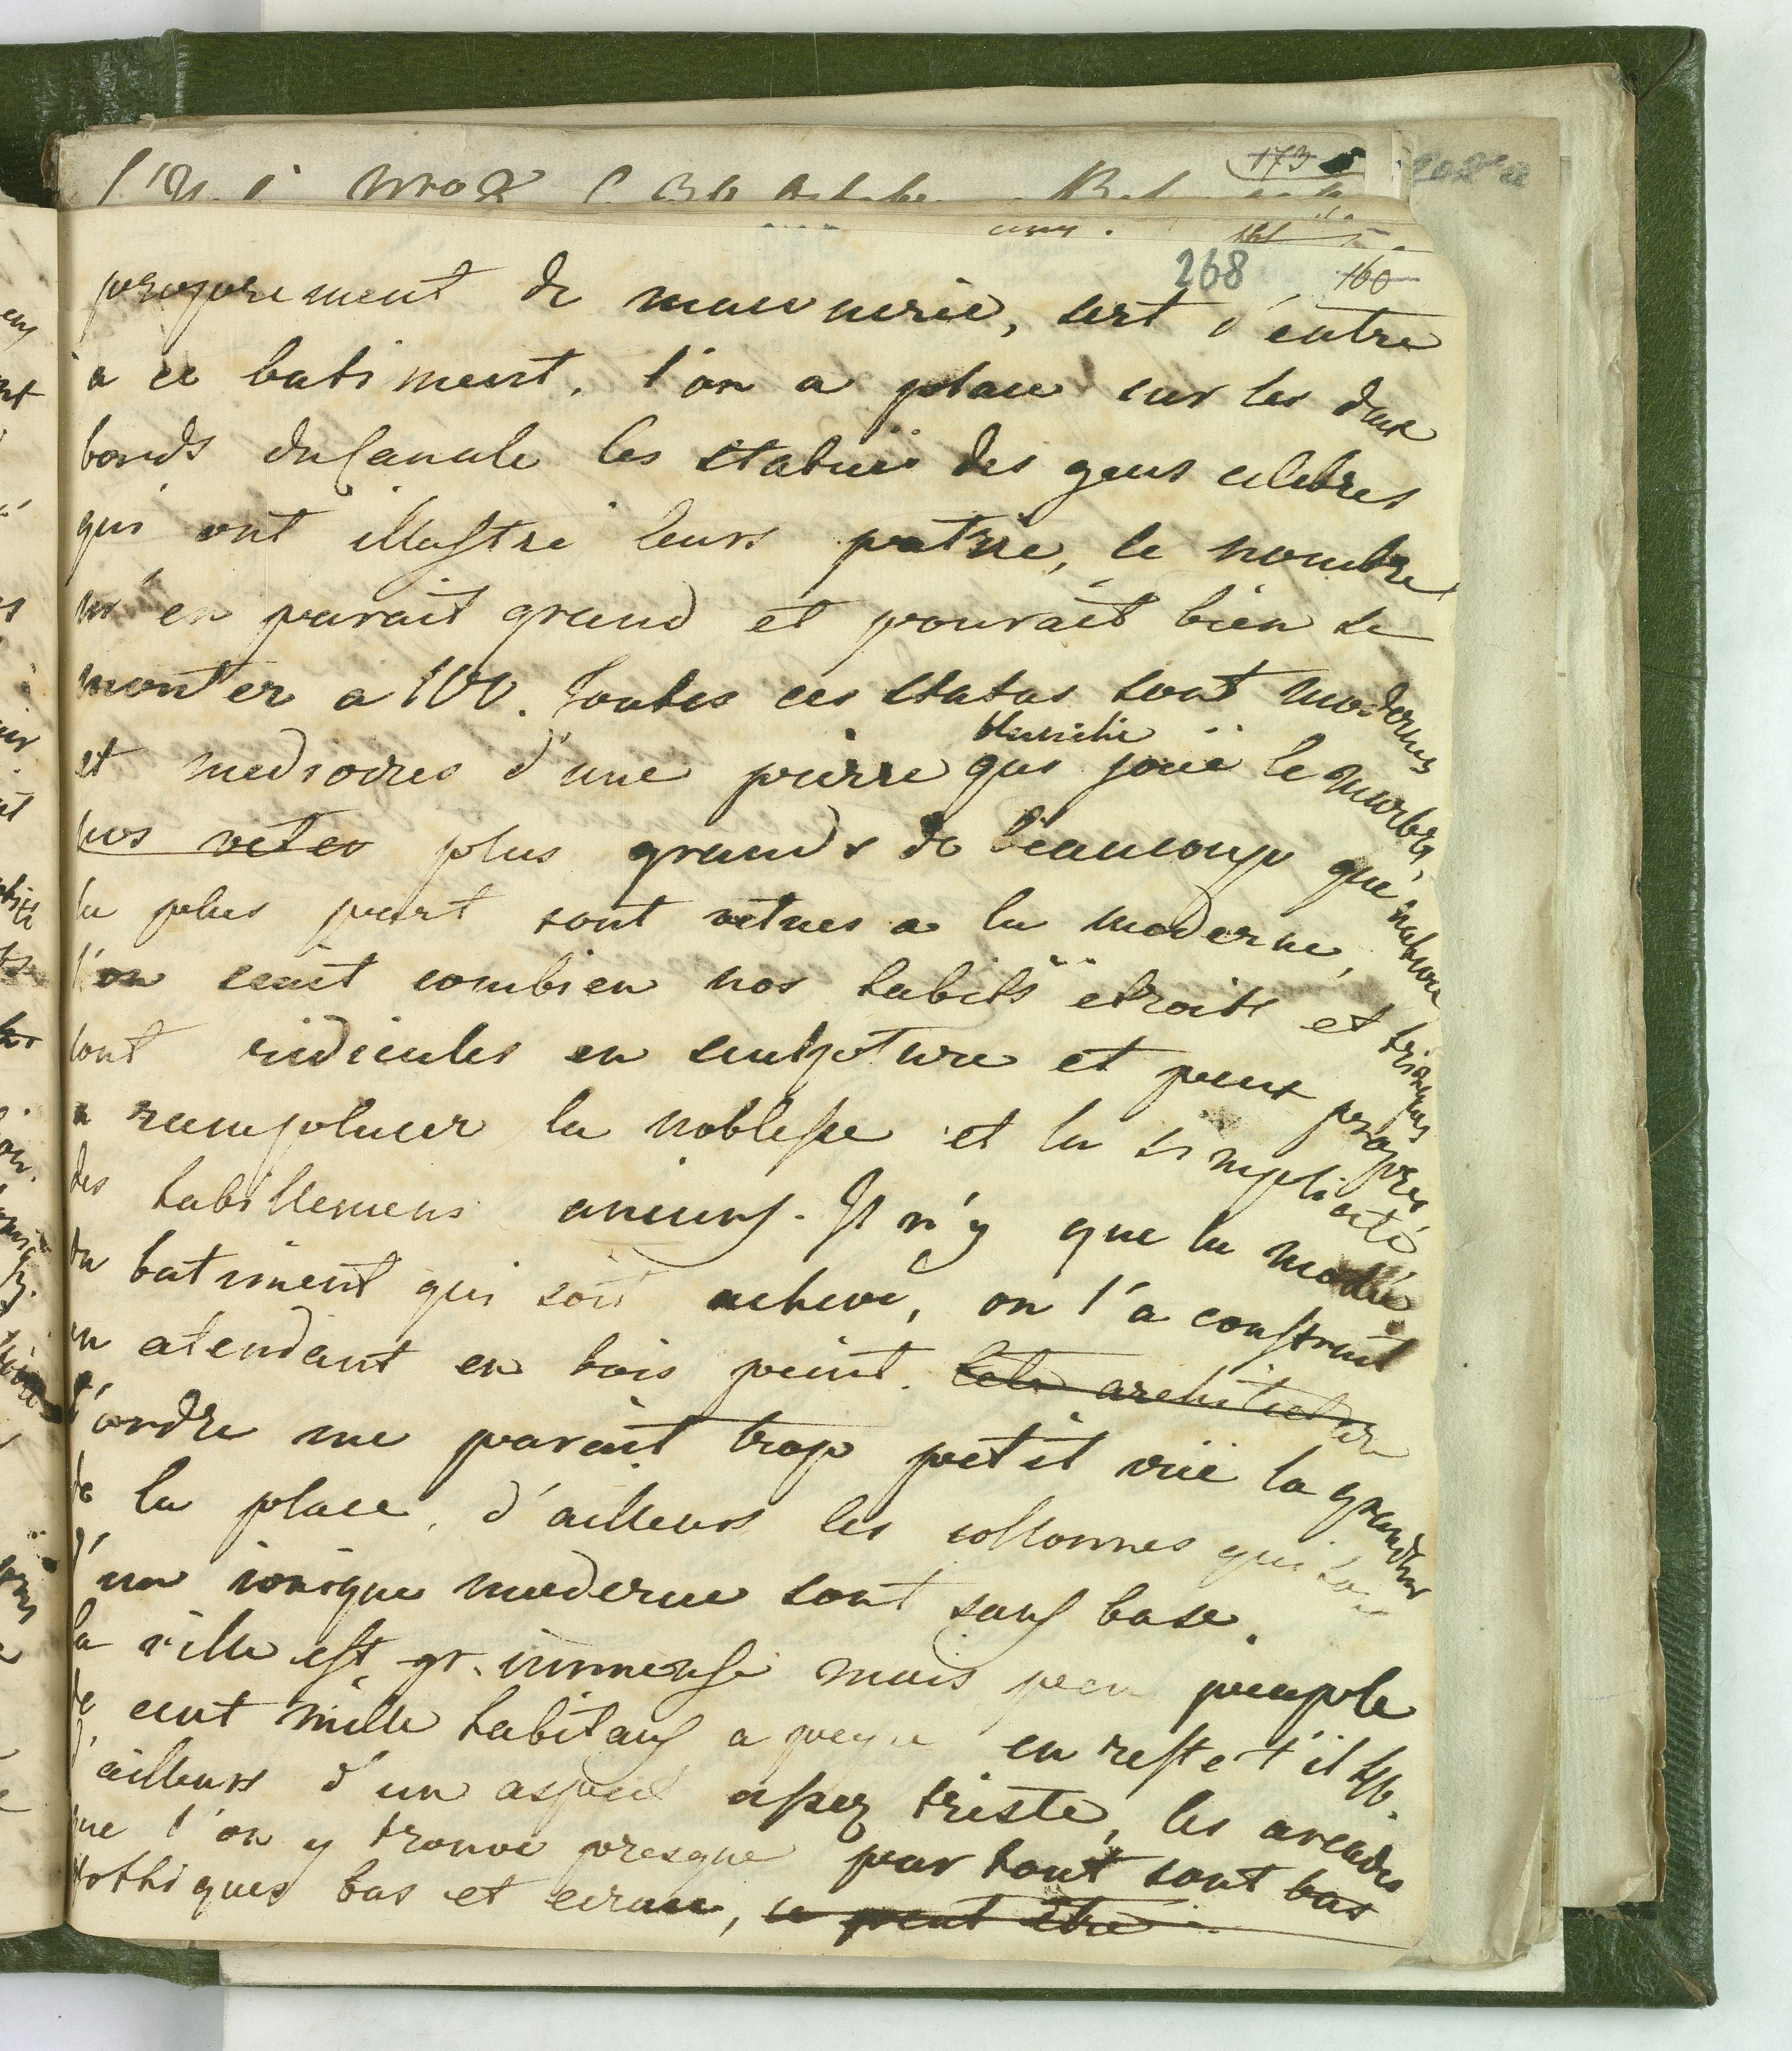 173
268 160
proprement de maconerie, sert d'entre
a ce batiment. l'on a place sur les deux
bords du canale les statuës des gens celebres
qui ont illustré leurs patrie, le nombre
m'en parait grand et pourait bien se
monter a 100. toutes ces status sont modernes
blanche
et mediocres d'une pierre qui joüe le marbre
plus grands de beaucoup que nature
la plus part sont vetues a la moderne,
l'on sent combien nos habits etroits et
sont ridicules en sculpture et peux propres
a remplacer la noblesse et la simplicité
des habillemens anciens. Il n'y que la moitié
du batiment qui soit acheve, on l'a construit
en atendant en bois peint. cete architecture
l'ordre me parait trop petit vüe la grandeur
de la place, d'ailleurs les collonnes qui sont
d'un ionique moderne sont sans base.
la ville est gr. immense mais peu peuple
de cent mille habitans a peine en reste t'il
d'ailleurs d'un aspect assez triste, les arcades
que l'on y trouve presque par tout sont bas
gothiques bas et ecrase, ce peut être